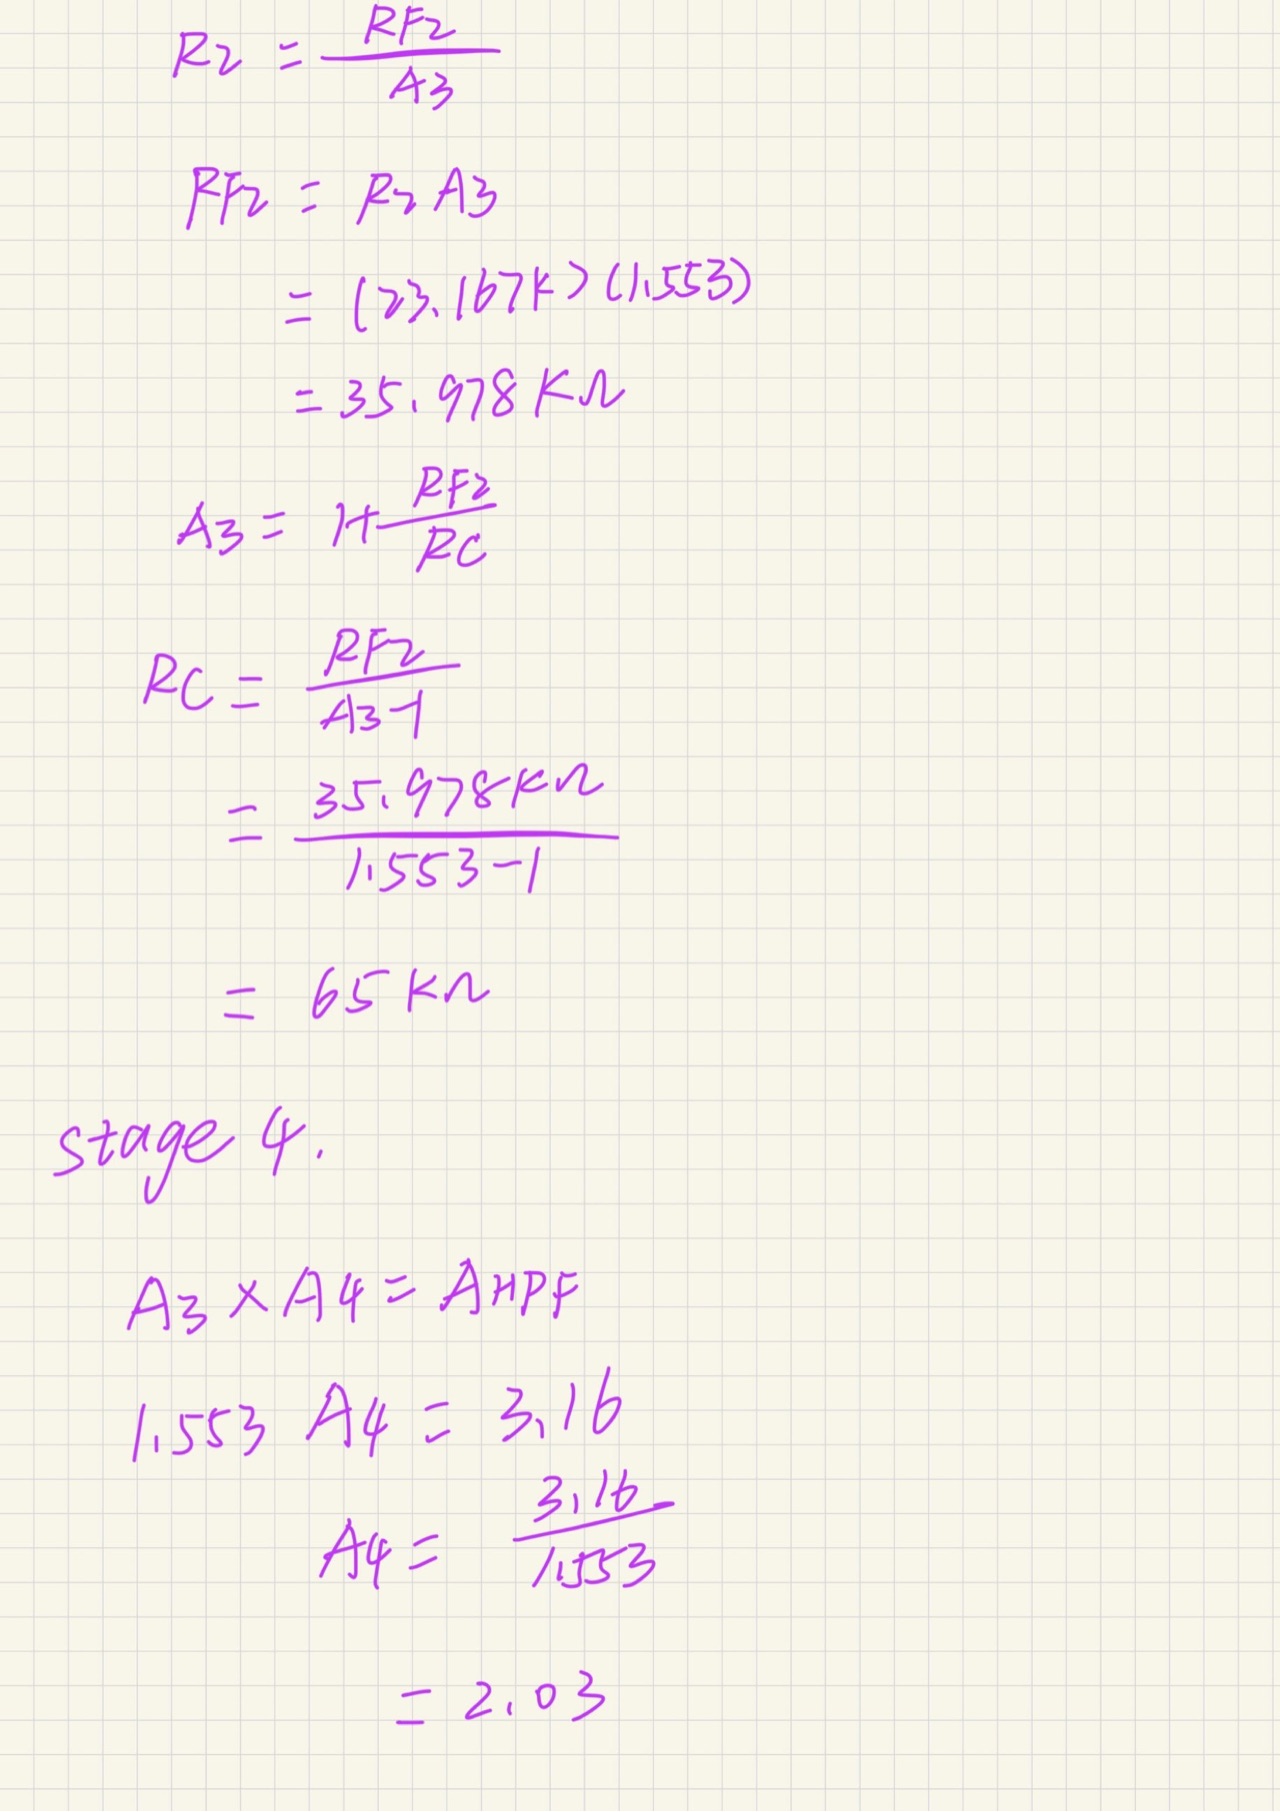 R2 = RF2 / A3
RF2 = R2 A3
= (23.167K)(1.553)
= 35.978 KΩ
A3 = 1+ RF2 / RC
RC = RF2 / A3-1
= 35.978KΩ / 1.553-1
= 65 KΩ
stage 4.
A3 × A4 = AHPF
1.553 A4 = 3.16
A4 = 3.16 / 1.553
= 2.03